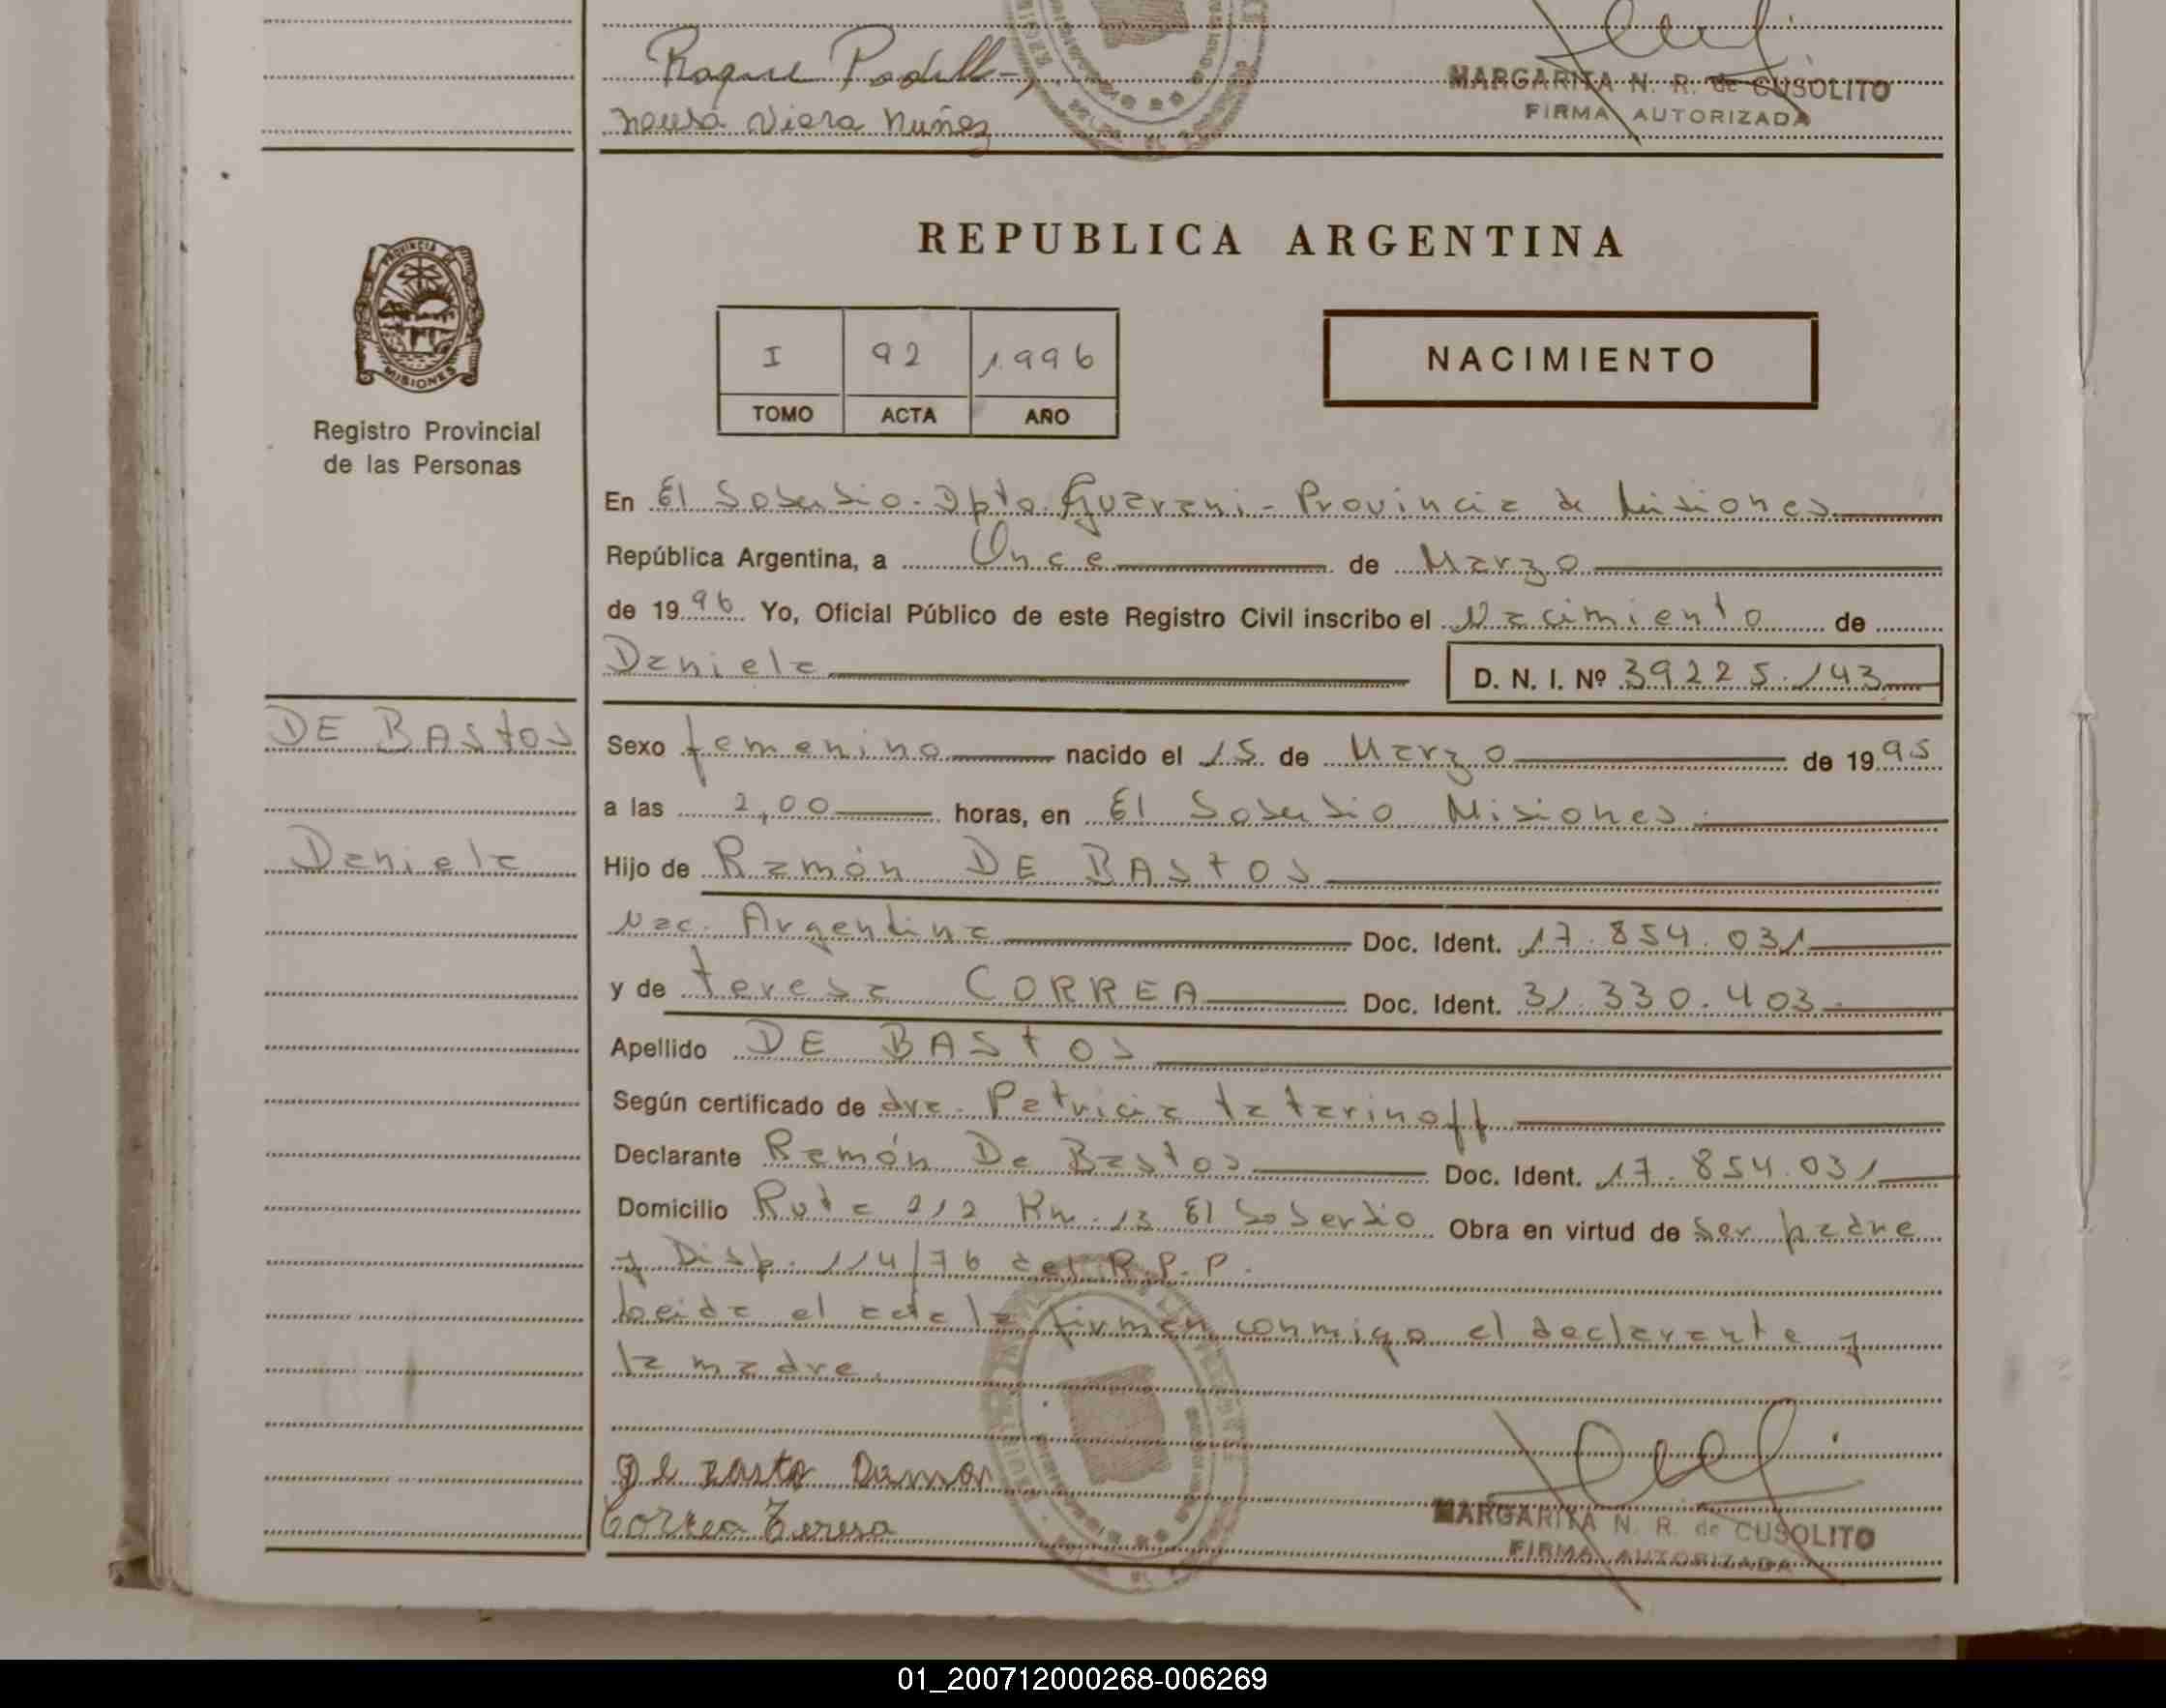 Roque Padilla
Neusa Viera Nuñez
MARGARITA N. R. de CUSOLITO
FIRMA AUTORIZADA
PROVINCIA DE MISIONES
Registro Provincial
de las Personas
REPUBLICA ARGENTINA
I 92 1996
TOMO ACTA AÑO
NACIMIENTO
En El Soberbio-Dpto. Guarani-Provincia de Misiones
República Argentina, a Once de Marzo
de 1996 Yo, Oficial Público de este Registro Civil inscribo el Nacimiento de
Daniela D. N. I. Nº 39225.143
DE BASTOS
Daniela
Sexo femenino nacido el 15 de Marzo de 1995
a las 2,00 horas, en El Soberbio Misiones
Hijo de Ramón DE BASTOS
Nac. Argentina Doc. Ident. 17.854.031
y de Teresa CORREA Doc. Ident. 31.330.403
Apellido DE BASTOS
Según certificado de dra. Patricia Tatarinoff
Declarante Ramón De Bastos Doc. Ident. 17.854.031
Domicilio Ruta 212 Km. 13 El Soberbio Obra en virtud de ser padre
y Disp. 114/76 del R.P.P.
Leida el acta la firman conmigo el declarante y
la madre.
Correa Teresa
MARGARITA N. R. de CUSOLITO
FIRMA AUTORIZADA
01_200712000268-006269